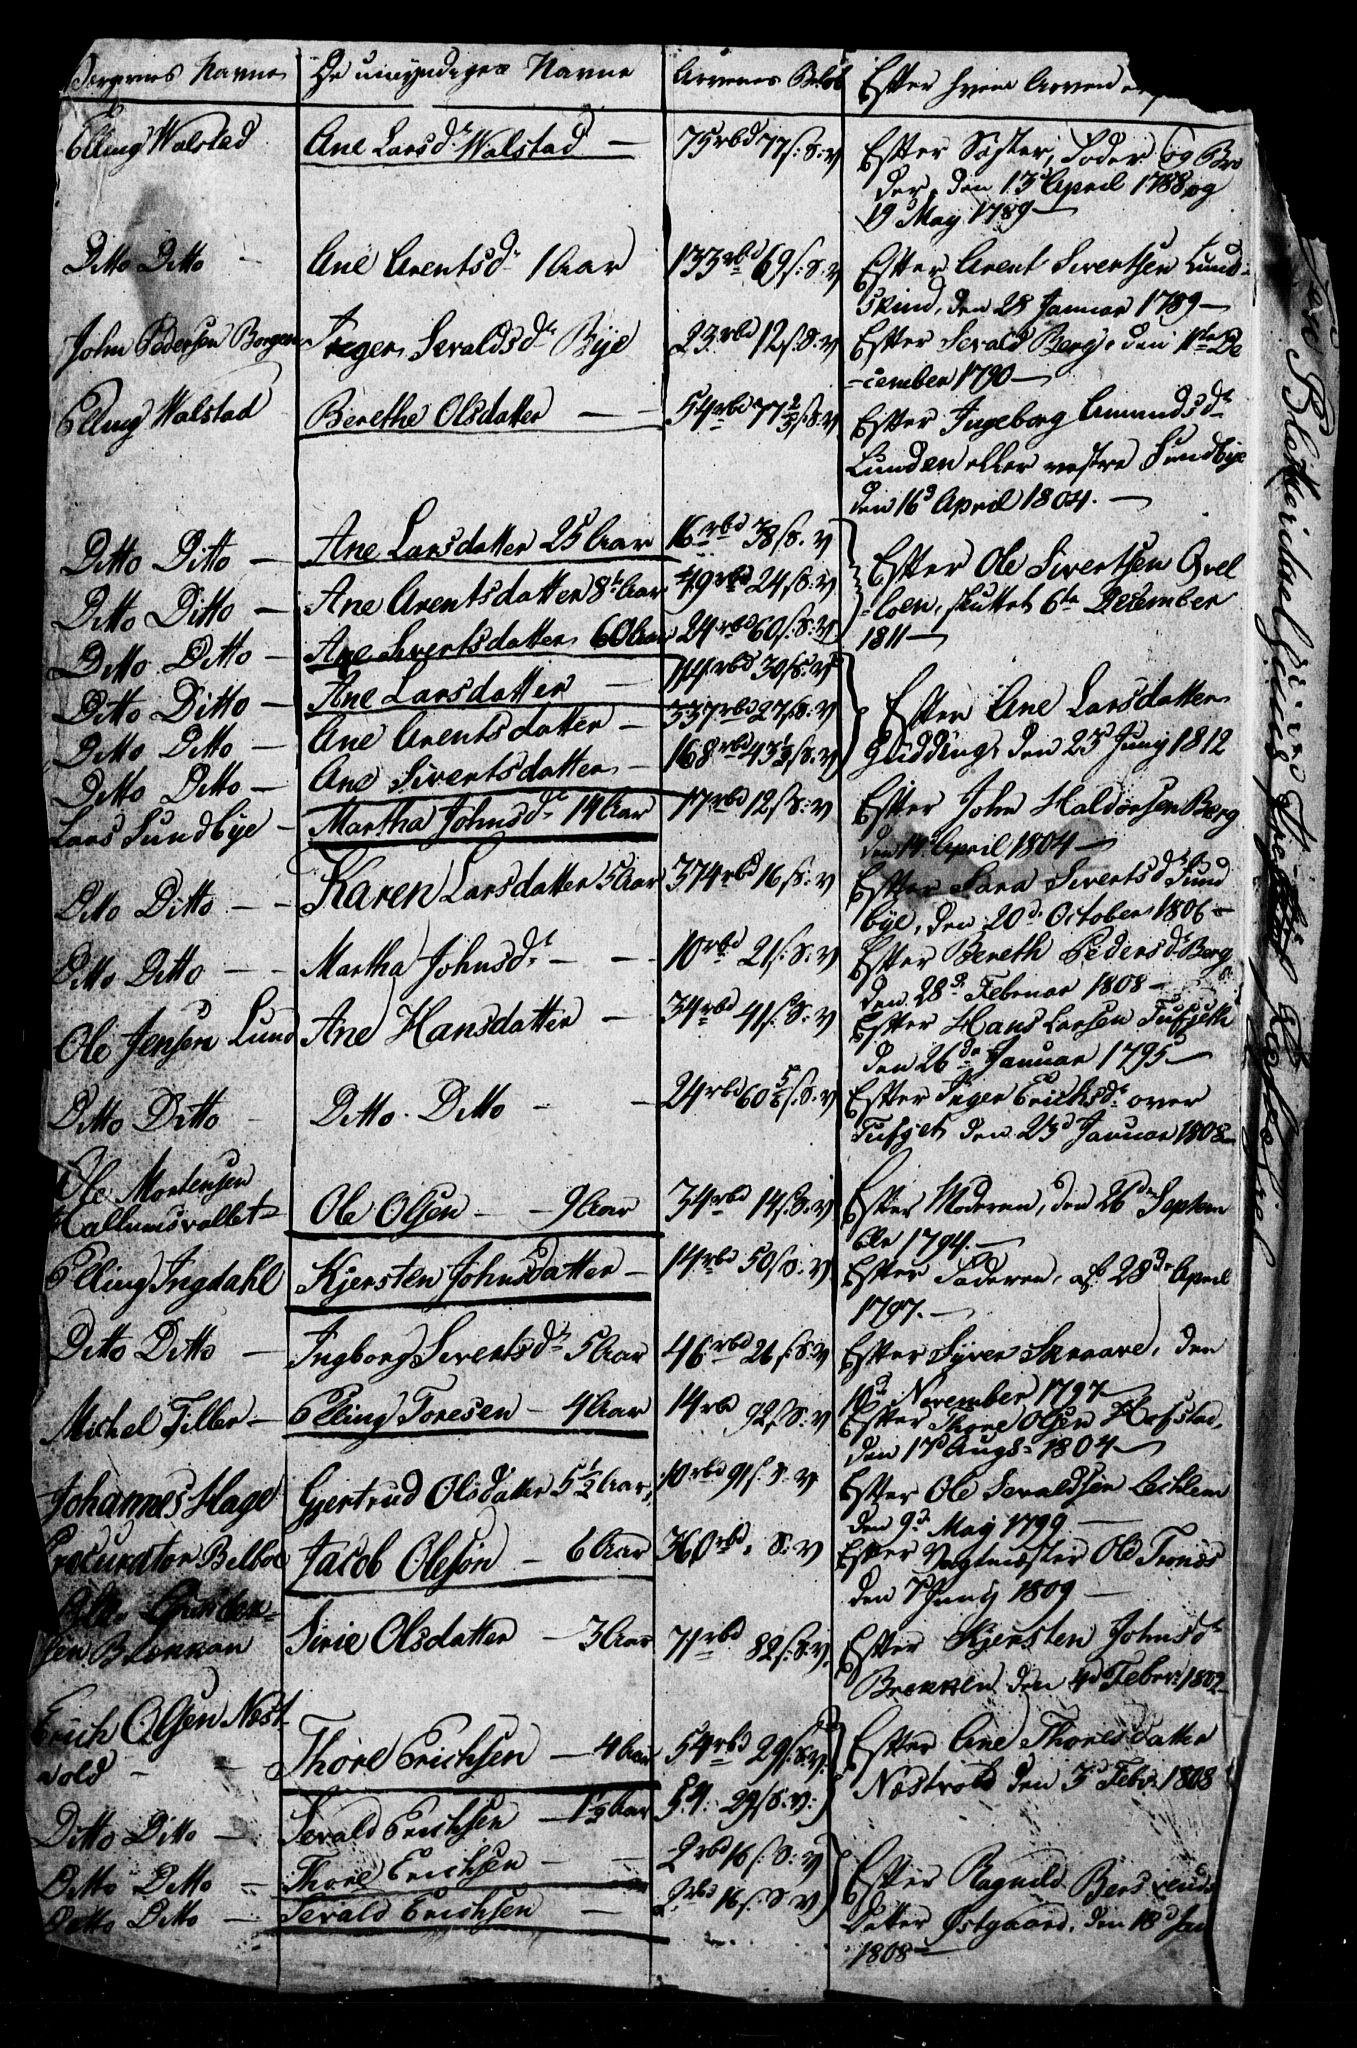 Værgernes Navne | De umyndiges Navne | Arvenes Beløb | Efter hvem Arven er
Elling Walstad | Ane Larsdr Walstad — | 75 rbd 77 s: S: v | Efter Søster, Fader og Bro
der, den 13d April 1788 og
19 May 1789 —
Ditto Ditto — | Ane Arentsdr 1 Aar | 133 rbd 69 s: S: v | Efter Arent Sivertsen Lund-
skind, den 28 Januar 1789 —
John Pedersen Borgen | Inger Sevaldsdr Bye | 23 rbd 12 s: S: v | Efter Sevald Berg, den 11te De
-cember 1790 —
Elling Walstad | Berethe Olsdatter — | 54 rbd 77 2/3 s: S: v | Efter Ingeborg Amundsdr
Lunden eller vestre Sundbye
den 16d April 1804. —
Ditto Ditto — | Ane Larsdatter 25 Aar | 16 rbd 38 s: S: v | Efter Ole Sivertsen Qvel
Ditto Ditto — | Ane Arentsdatter 8te Aar | 49 rbd 24 s: S: v | -loen, sluttet 6te December
Ditto Ditto — | Ane Sivertsdatter 60 Aar | 24 rbd 60 s: S: v | 1811 —
Ditto Ditto — | Ane Larsdatter — | 114 rbd 30 s: S: v | Efter Ane Larsdatter
Ditto Ditto — | Ane Arentsdatter — | 337 rbd 27 s: S: v | Gudding, den 23d Juny 1812
Ditto Ditto — | Ane Sivertsdatter — | 168 rbd 43 1/2 s: S: v
Lars Sundbye — | Martha Johnsdr 14 Aar | 17 rbd 12 s: S: v | Efter John Haldorsen Berg
den 14 April 1804 —
Ditto Ditto — — | Karen Larsdatter 5 Aar | 374 rbd 16 s: S: v | Efter Sara Sivertsdr Sund
bye, den 20d October 1806 —
Ditto Ditto — — | Martha Johnsdr — — | 10 rbd 21 s: S: v | Efter Bereth Pedersdr Berg
den 28d Februar 1808 —
Ole Jensen Lund | Ane Hansdatter — | 34 rbd 41 s: S: v | Efter Hans Larsen
den 26de Januar 1795 —
Ditto Ditto — | Ditto Ditto — — | 24 rbd 60 s: S: v | Efter Inger Erichsdr over
den 23d Januar 1808 —
Ole Mortensen
Hallumsvallet — | Ole Olsen — 9 Aar | 34 rbd 14 s: S: v | Efter Moderen, den 26de Septem
ber 1794. —
Elling Ingdahl | Kjersten Johnsdatter — | 14 rbd 50 s: S: v | Efter Faderen, af 28de April
1797. —
Ditto Ditto — | Ingborg Sivertsdr 5 Aar | 46 rbd 26 s: S: v | Efter Syver Skaare, den
10d November 1797 —
Michel Tiller — | Elling Toresen — 4 Aar | 14 rbd 92 s: S: v | Efter Thore Olsen Hofstad,
den 17d Augs: 1804 —
Johannes Hage | Gjertrud Olsdatter 5 1/2 Aar | 10 rbd 91 s: S: v | Efter Ole Sevaldsen Lechlem
den 9d May 1799 —
Procurator Belboe | Jacob Olesøn — 6 Aar | 360 rbd. S: v | Efter Vagtmester Ole Tronæs
den 7 Juny 1809 —
sen Brekkan | Sirie Olsdatter — 3 Aar | 71 rbd 82 s: S: v. | Efter Kjersten Johnsdr
Brekken den 4d Febr: 1802
Erich Olsen Næst
vold — — | Thore Erichsen — 4 Aar | 54 rbd 29 s: S: v. | Efter Ane Thoresdatter
Næstvold den 3d Febr: 1808
Ditto Ditto — | Sevald Erichsen — 1 1/2 Aar | 54: 29 s: S: v:
Ditto Ditto — | Thore Erichsen — — | 2 rbd 16 s: S: v | Efter Ragnild Bersvends
Ditto Ditto — | Sevald Erichsen — | 2 rbd 16 s: S: v | Datter Østgaard, den 18d Jan
1808 —